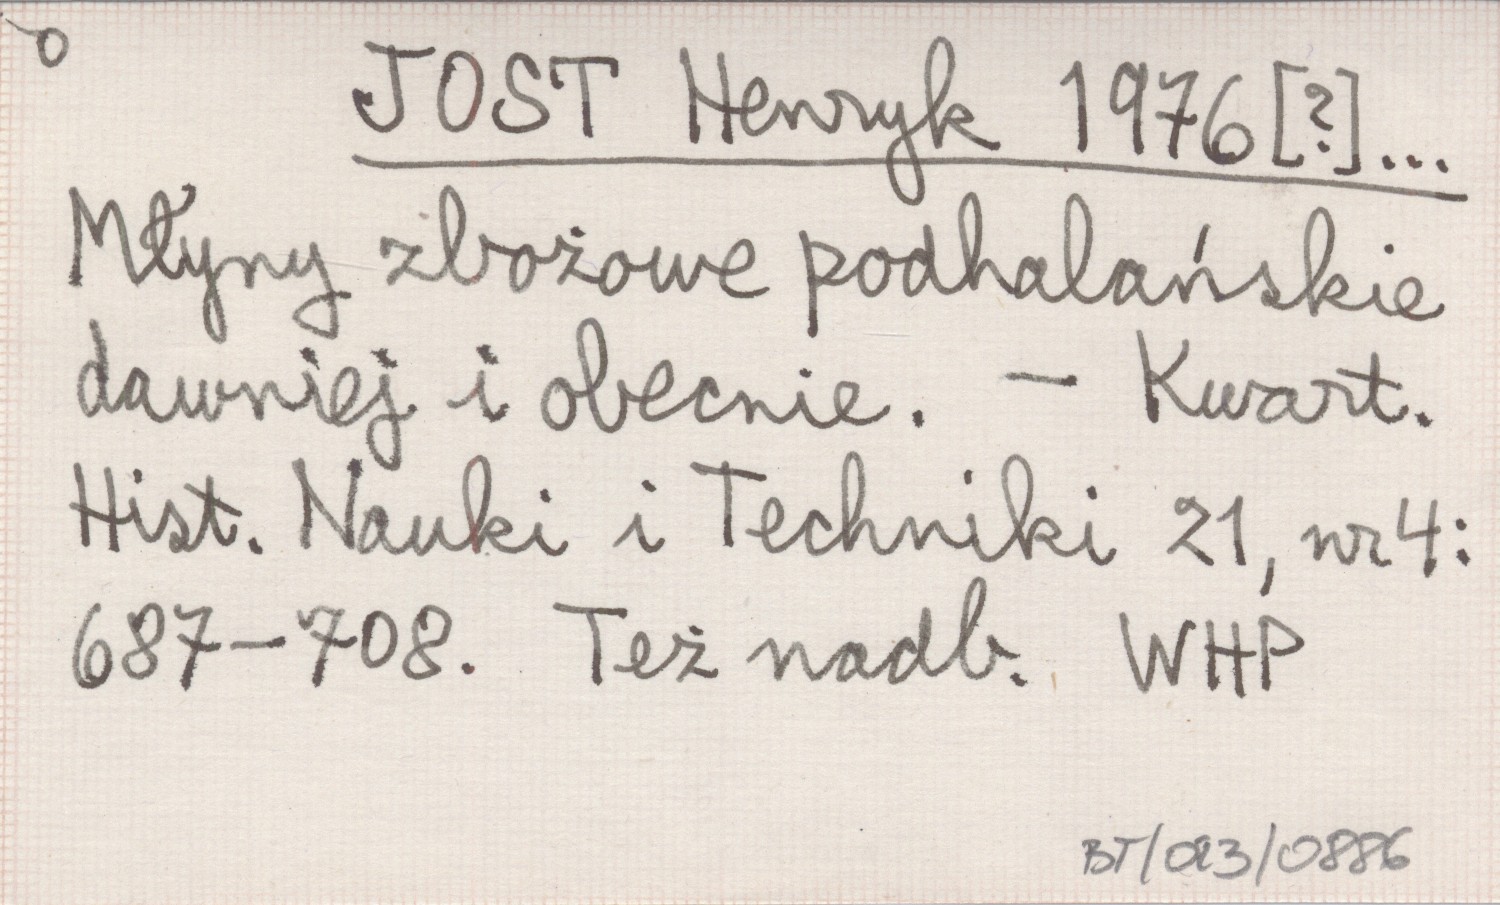 o
JOST Henryk 1976[?]...
Młyny zbożowe podhalańskie
dawniej i obecnie. – Kwart.
Hist. Nauki i Techniki 21, nr 4:
687–708. Też nadb. WHP
BT/023/0886